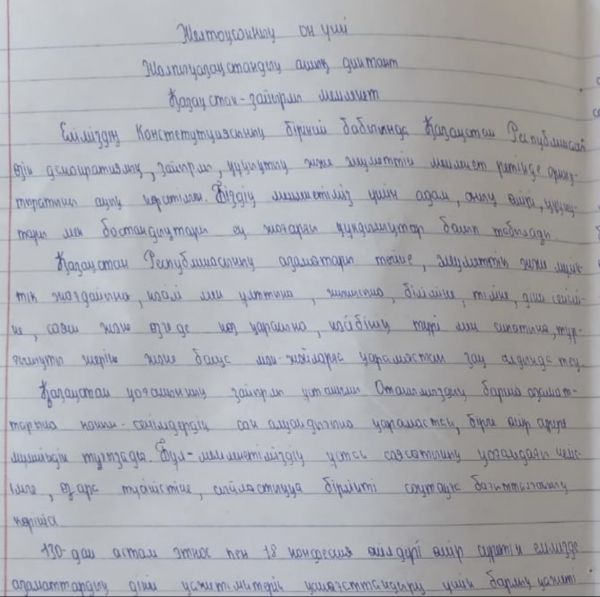 Желтоқсанның он үші
Жалпықазақстандық ашық диктант
Қазақстан-зайырлы мемлекет
Еліміздің Конституциясының бірінші бабында Қазақстан Республикасы
өзін демократиялық, зайырлы, құқықтық және әлеуметтік мемлекет ретінде орнық-
тыратыны анық көрсетілген. Біздің мемлекетіміз үшін адам, оның өмірі, құқық-
тары мен бостандықтары ең жоғарғы құндылықтар болып табылады.
Қазақстан Республикасының азаматтары тегіне, әлеуметтік және мүлік-
тік жағдайына, нәсілі мен ұлтына, жынысына, біліміне, тіліне, діни сенімі-
не, саяси және өзге де көз қарасына, кәсібінің түрі мен сипатына, тұр-
ғылықты жеріне және басқа мән-жайларға қарамастан заң алдында тең
Қазақстан қоғамының зайырлы ұстанымы Отанымыздың барша азамат-
тарына наным-сенімдердің сан алуандығына қарамастан, бірге өмір сүруге
мүмкіндік туғызады. Бұл-мемлекетіміздің ұстан саясатының қоғамдағы келіс-
імге, өзара түсіністікке, ынтымастыққа бірлікті сақтауға бағытталғанының
көрінісі
130-дан астам этнос пен 18 конфессия өкілдері өмір сүретін елімізде
азаматтардың діни қажеттіліктерін қанағаттандыру үшін барлық қажетті